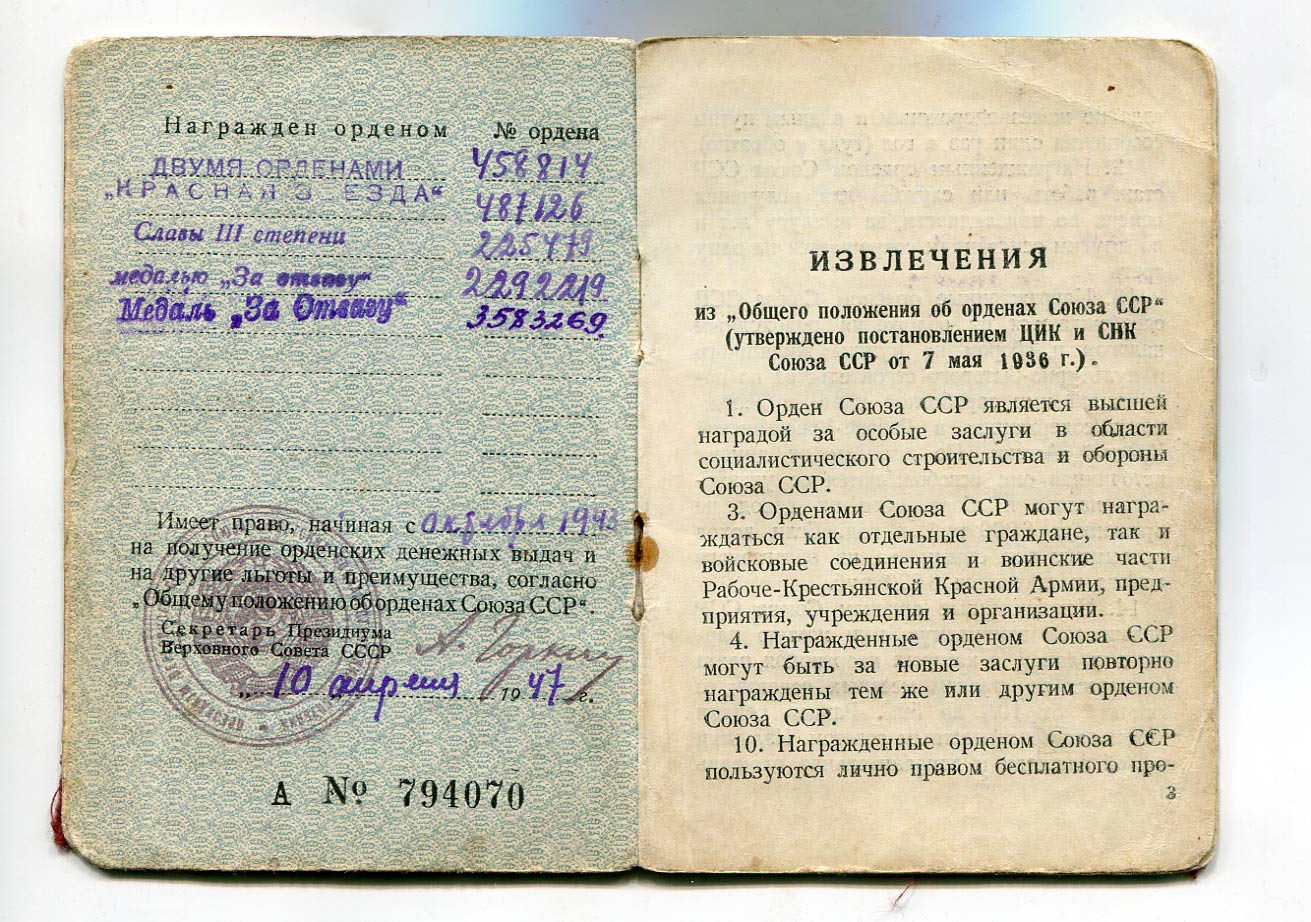 Награжден орденом № ордена
ДВУМЯ ОРДЕНАМИ 458814
„КРАСНАЯ З ЕЗДА“ 487126
Славы III степени 225479
медалью „За отвагу“ 2292219
Медаль „За Отвагу“ 3583269
Имеет право, начиная с октября 1943
на получение орденских денежных выдач и
на другие льготы и преимущества, согласно
„Общему положению об орденах Союза ССР“.
Секретарь Президиума
Верховного Совета СССР А. Горкин
„ 10 апреля 1947 г.
А № 794070
ИЗВЛЕЧЕНИЯ
из „Общего положения об орденах Союза ССР“
(утверждено постановлением ЦИК и СНК
Союза ССР от 7 мая 1936 г.).
1. Орден Союза ССР является высшей
наградой за особые заслуги в области
социалистического строительства и обороны
Союза ССР.
3. Орденами Союза ССР могут награ-
ждаться как отдельные граждане, так и
войсковые соединения и воинские части
Рабоче-Крестьянской Красной Армии, пред-
приятия, учреждения и организации.
4. Награжденные орденом Союза ССР
могут быть за новые заслуги повторно
награждены тем же или другим орденом
Союза ССР.
10. Награжденные орденом Союза ССР
пользуются лично правом бесплатного про-
3